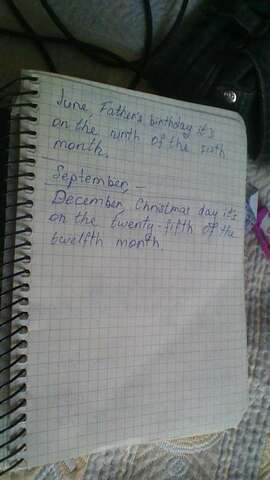 June, Father's birthday it's
on the ninth of the sixth
month.
September, –
December, Christmas day it's
on the twenty-fifth of the
twelfth month.